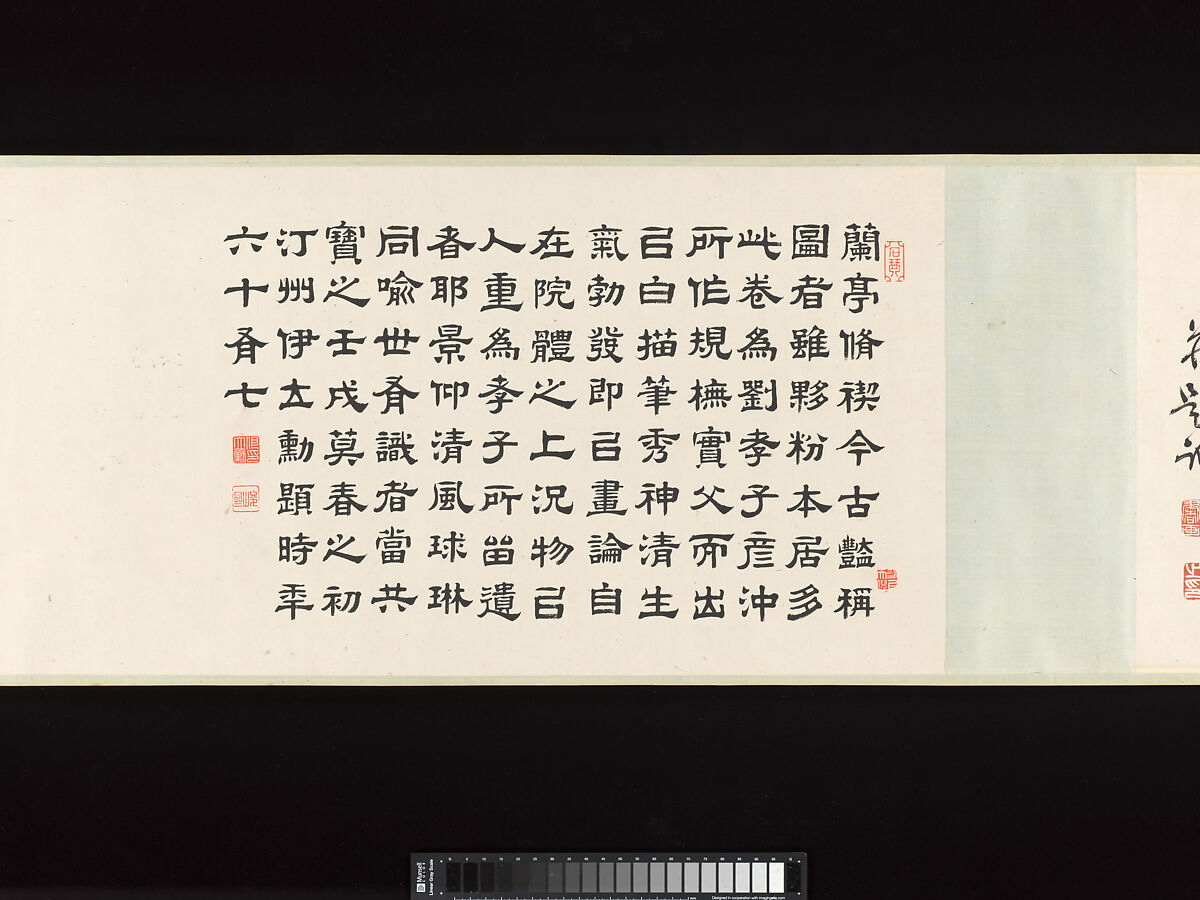 蘭亭脩禊今古豔稱
圖者雖夥粉本居多
此卷為劉孝子彥沖
所作規橅實父而出
㠯白描筆秀神清生
氣勃發即㠯畫論自
在院體之上況物㠯
人重為孝子所留遺
者耶景仰清風球琳
同喻世有識者當共
寶之壬戌莫春之初
汀州伊立勳題時年
六十有七
Munsell
Linear Gray Scale
Designed in cooperation with imagingetc.com